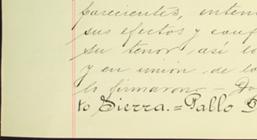 parecientes, enten
sus efectos y conf
su tenor, así lo
y en unión de lo
la firmaron = D
to Sierra. = Pallo